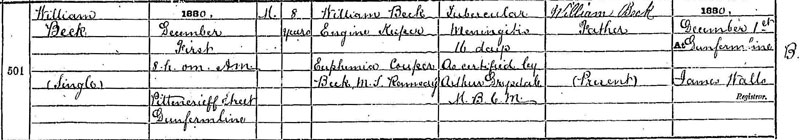 501
William
Beck
(Single)
1880,
December
First
8.h. om. A.M.
Pittencrieff Street
Dunfermline
M.
8
years
William Beck
Engine Keeper
Euphemia Couper
Beck, M.S. Ramsay
Tubercular
Meningitis
16 days
As certified by
Arthur
M.B.C.M.
William Beck
Father
(Present)
1880,
December 1st
At Dunfermline
James Walls
Registrar.
B.